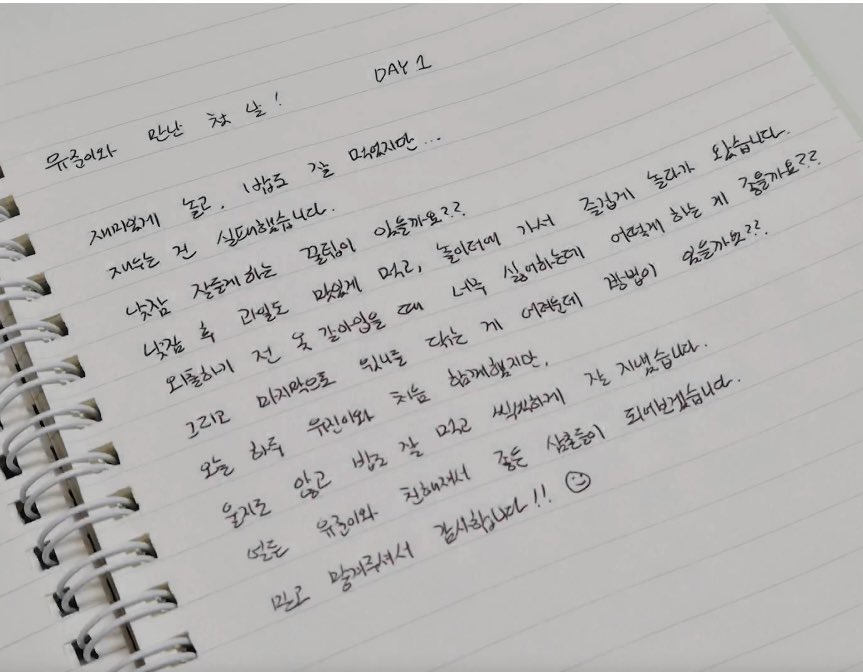 DAY 1
유준이와 만난 첫 날!
재미있게 놀고, 밥도 잘 먹었지만...
재우는 건 실패했습니다.
낮잠 잘들게 하는 꿀팁이 있을까요??
낮잠 후 과일도 맛있게 먹고, 놀이터에 가서 즐겁게 놀다가 왔습니다.
외출하기 전 옷 갈아입을 때 너무 싫어하는데 어떻게 하는 게 좋을까요??
그리고 마지막으로 윗니를 닦는 게 어려운데 방법이 있을까요??
오늘 하루 유진이와 처음 함께했지만,
울지도 않고 밥도 잘 먹고 씩씩하게 잘 지냈습니다.
얼른 유준이와 친해져서 좋은 삼촌들이 되어보겠습니다.
믿고 맡겨주셔서 감사합니다!!